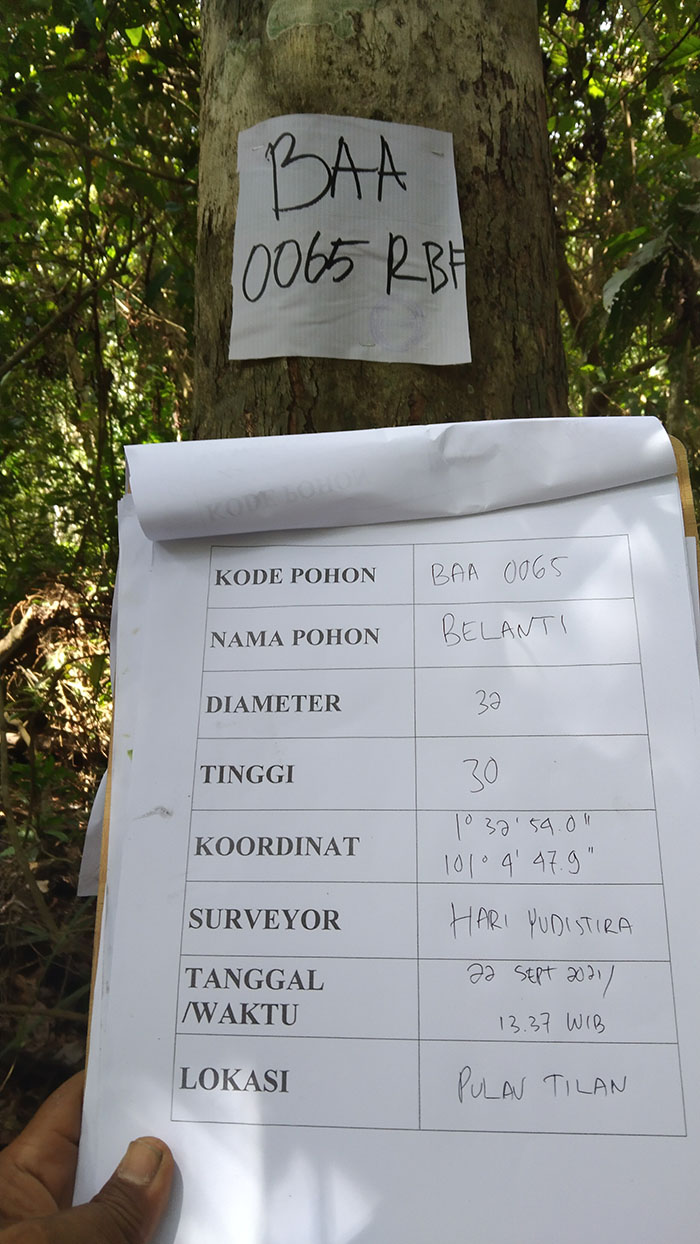 BAA
0065 RBF
KODE POHON
KODE POHON BAA 0065
NAMA POHON BELANTI
DIAMETER 32
TINGGI 30
KOORDINAT 1° 32' 54.0"
101° 4' 47.9"
SURVEYOR HARI YUDISTIRA
TANGGAL 22 SEPT 2021/
/WAKTU 13.37 WIB
LOKASI PULAU TILAN